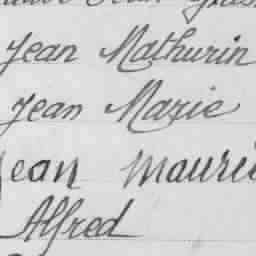 Jean Mathurin
Jean Marie
Jean Mauri
Alfred